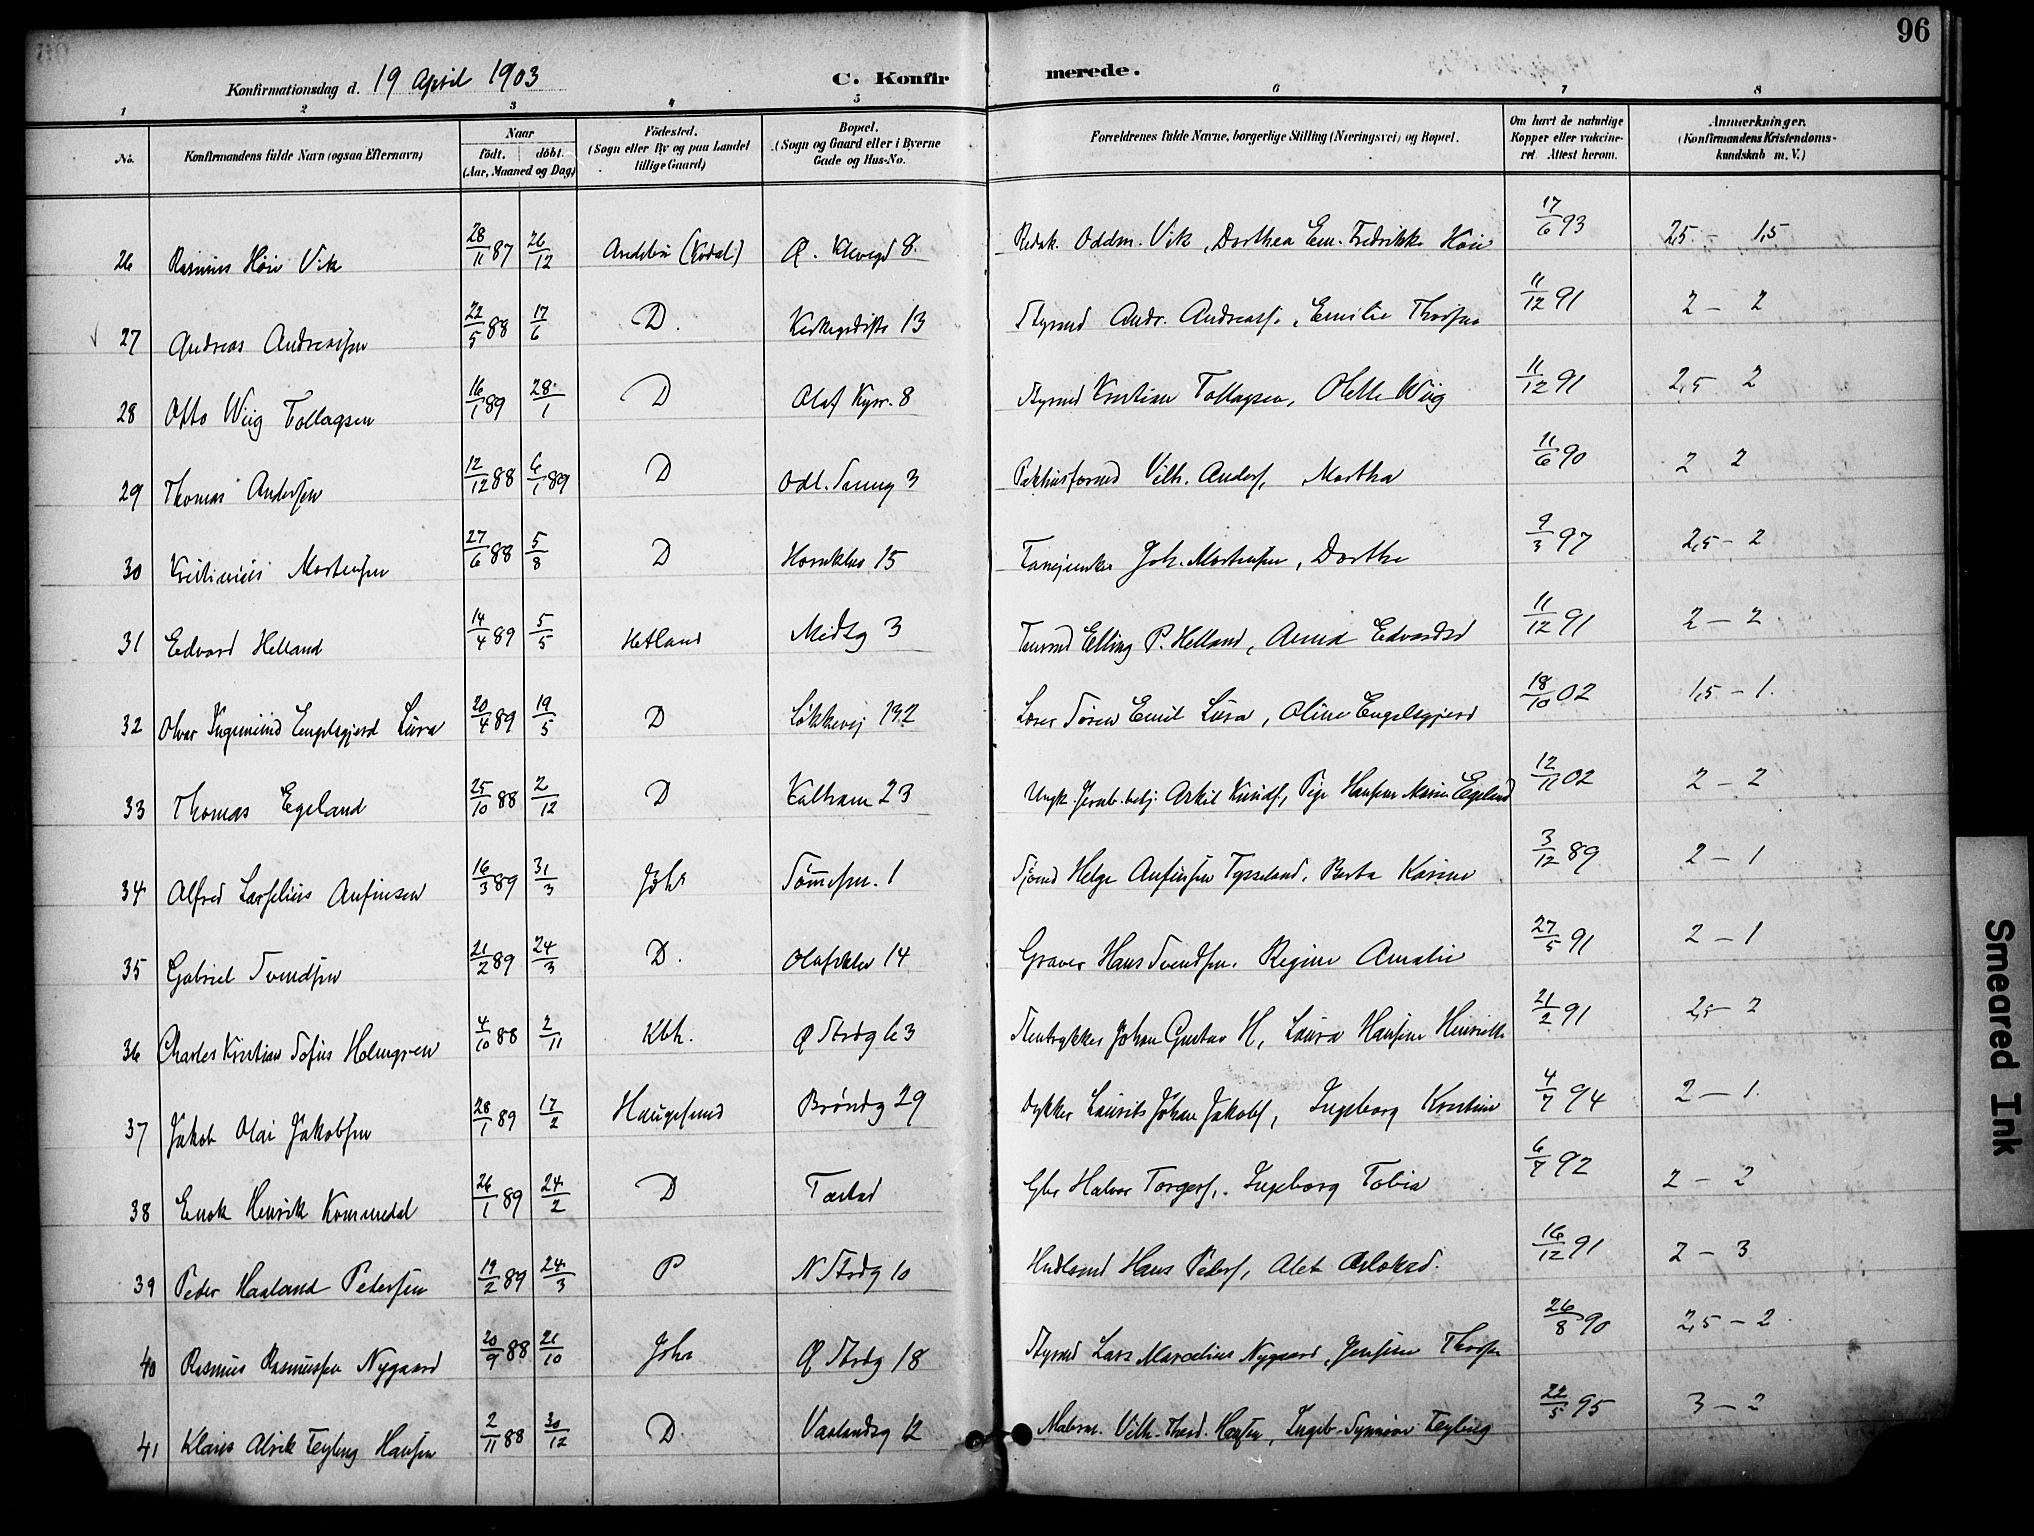 96
Konfirmationsdag d. 19 April 1903
C. Konfirmerede.
1 2 3 4 5 6 7 8
No. Konfirmandens fulde Navn (ogsaa Efternavn) Naar født. døbt. (Aar, Maaned og Dag) Fødested. (Sogn eller By og paa Landet tillige Gaard) Bopæl. (Sogn og Gaard eller i Byerne Gade og Hus-No. Forældrenes fulde Navne, borgerlige Stilling (Næringsvei) og Bopæl. Om havt de naturlige Kopper eller vakcineret. Attest herom. Anmærkninger. (Konfirmandens Kristendomskundskab m. V.)
26 Rasmus Høie Vik 28/11 87 26/12 8 Redak. Oddm. Vik, Dorthea Em. Fredrikke Høie 17/6 93 2,5 - 1,5
27 Andreas Andreassen 22/5 88 17/6 D. 13 Styrmd Andr. Andreass., Emilie 11/12 91 2 - 2
28 Otto Wiig Tollagsen 16/1 89 28/1 D Olaf Kyrr. 8 Styrmd Kristian Tollagsen, Olette Wiig 11/12 91 2,5 2
29 Thomas Andersen 12/12 88 6/1 89 D 3 Vilh. Anders, Martha 11/6 90 2 2
30 Mortensen 27/6 88 5/8 D Hornklov 15 Joh. Mortensen, Dorthe 9/3 97 2,5 - 2
31 Edvard Helland 14/4 89 5/5 Hetland Midtg 3 Elling P. Helland, Anna Edvardsd 11/12 91 2 - 2
32 Olvar Ingemund Engelsgjerd Lura 20/4 89 19/5 D Løkkevej 132 Søren Emil Lura, Oline Engelsgjerd 18/10 02 1,5 - 1.
33 Thomas Egeland 25/10 88 2/12 D 23 Ungk. Askil Knuds, Pige Hansine Marie Egeland 12/11 02 2 - 2
34 Alfred Anfinsen 16/3 89 31/3 Joh. 1 Sjømd Helge Anfinsen Tysseland, Berta Karine 3/12 89 2 - 1
35 Gabriel Svendsen 21/2 89 24/3 D. Olafsklev 14 Graver Hans Svendsen. Regine Amalie 27/5 91 2 - 1
36 Charles Kristian Sofus Holmgren 4/10 88 2/11 Kbh. Ø Strdg 63 Stentrykker Johan Gustav H, Laura Hansine Henriette 21/2 91 2,5 2
37 Jakob Olai Jakobsen 28/1 89 17/2 Haugesund Brøndg 29 Dykker Laurits Johan Jakobs, Ingeborg Kristine 4/7 94 2 - 1.
38 Enok Henrik Kommedal 26/1 89 24/2 D Tastad Gbr Halvor Torgers,. Ingeborg Tobia 6/7 92 2 - 2
39 Peder Haaland Pedersen 19/2 89 24/3 P N Strdg 10 Hans Peders, Alet 16/12 91 2 - 3
40 Rasmus Rasmussen Nygaard 20/9 88 21/10 Joh. Ø Strdg 18 Styrmd Lars Marcelius Nygaard, Jensine 26/8 90 2,5 - 2
41 Klaus Alrik Teyberg Hansen 2/11 88 30/12 D. Vaalandsg 12 Vilh. Theod. Hansen, Ingeb. Synnøve Teyberg 22/5 95 3 - 2
Smeared Ink